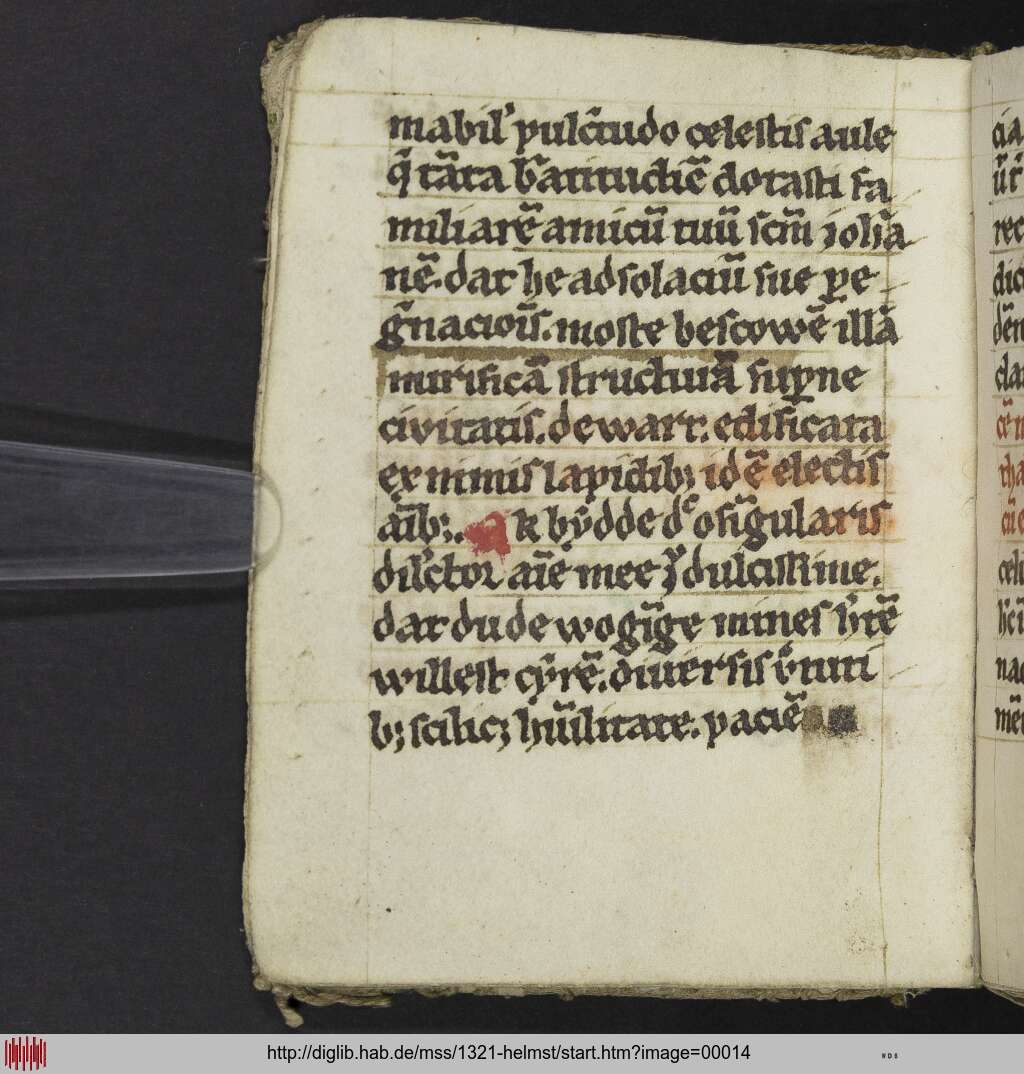 mabilꝰ pulc̄tudo celestis aule
q̄ tāta b̄atitudiē dotasti fa
miliarē amicū tuū sc̄m ioh̄a
nē. dat he ad solaciū sue ꝑe
ḡnacioīs. moste bescowē illā
mirificā structurā suꝑne
civitatis. de wart. edificata
ex nimis lapidibꝫ id ē electis
aīabꝫ. Ik bydde dͤ o sīgularis
dil̓ctor aīe mee ⁊ dulcissime.
dat du de wogīge mines h̓tē
willest cyrē. diuersis v̓tuti
bꝫ scilicꝫ hūilitate. paciē
cia
rec
dici
dēn
clar
nac
mē
http://diglib.hab.de/mss/1321-helmst/start.htm?image=00014